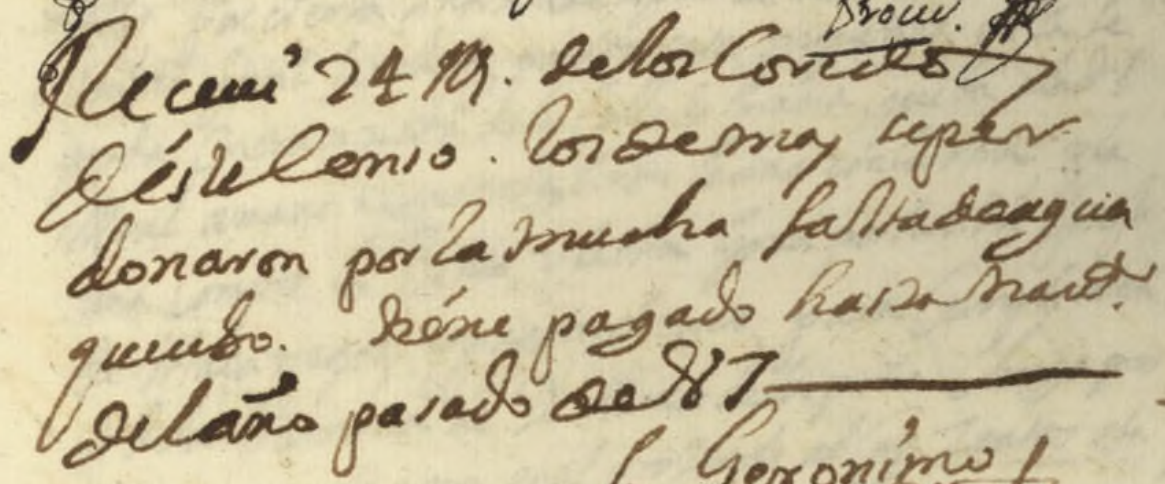 Prou.
Receui 24 rs. de los Corridos
déste Censo. Los demas se per
donaron por la mucha falta de agua
que vbo. tiéne pagado hasta Nauid.
del año pasado de 87
Geronimo